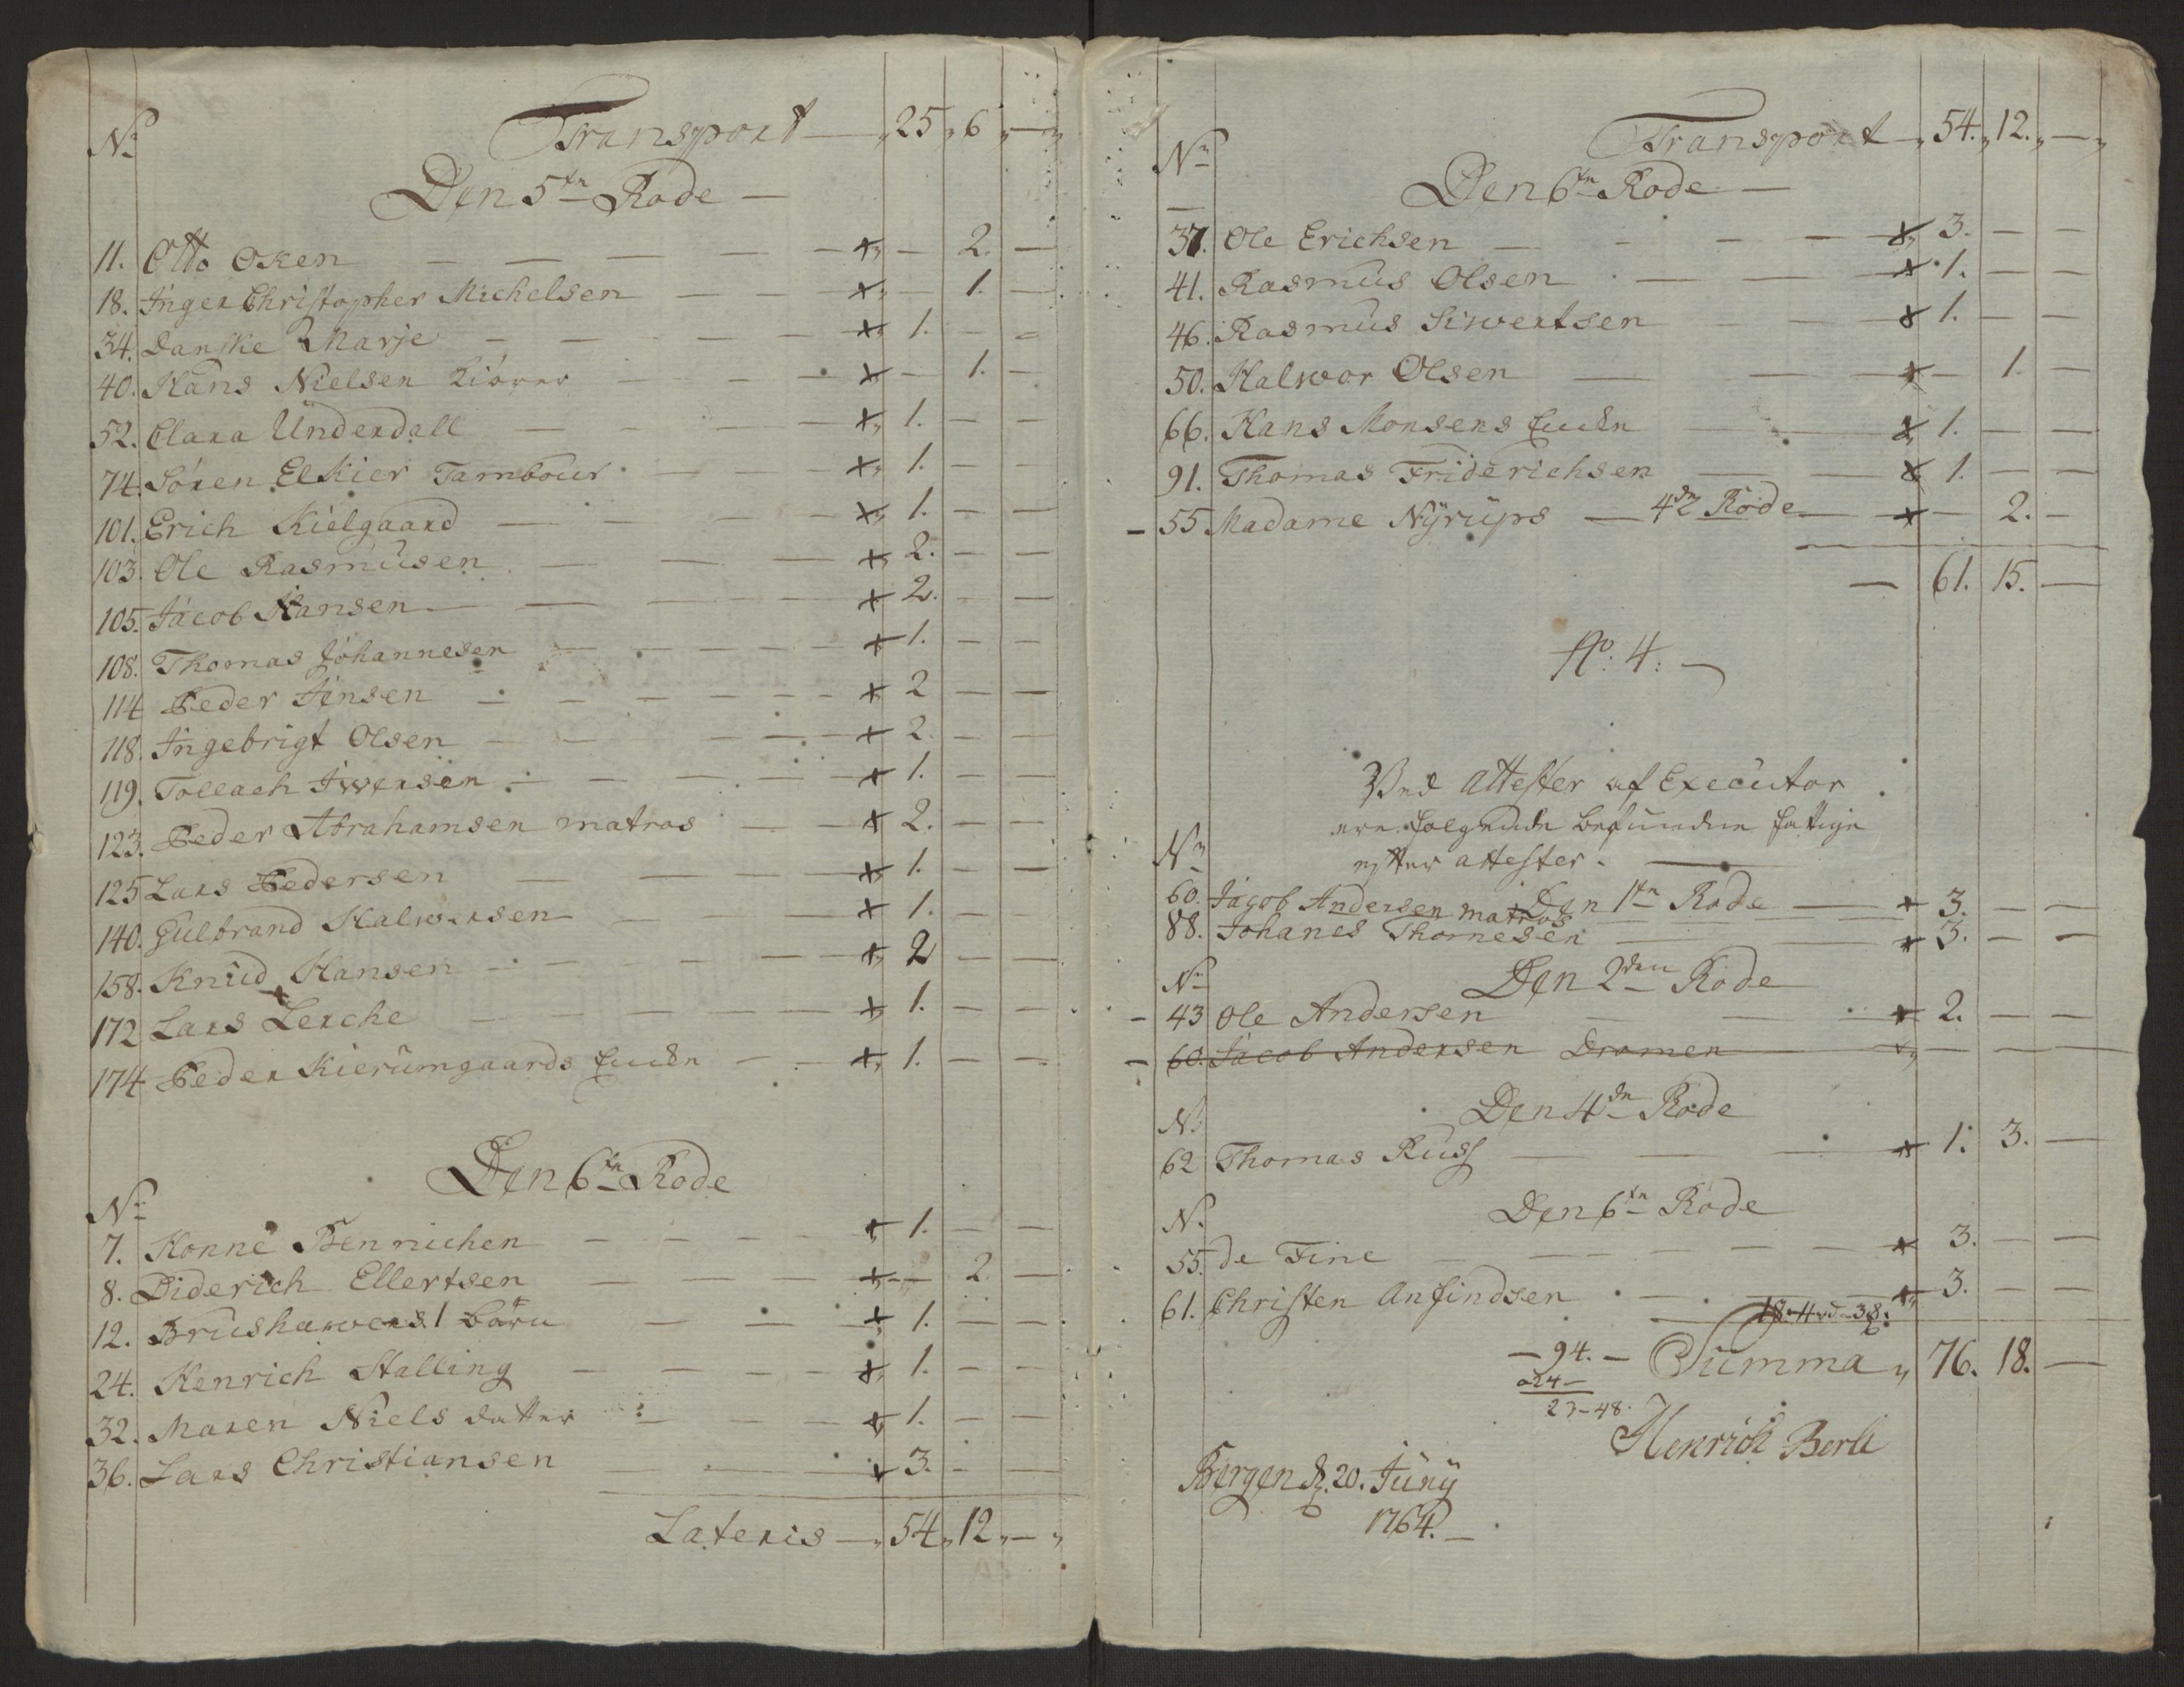 No Transport — 25 6 —
Den 5te Rode —
11. Otto Oken — 2. —
18. Inger Christopher Michelsen — 1. —
34. Danske Marje 1. — —
40. Hans Nielsen — 1. —
52. Clara Underdall 1. — —
74. Sören Elkier Tambour 1. — —
101. Erich Kielgaard 1. — —
103. Ole Rasmusen 2. — —
105. Jacob Hansen 2. — —
108. Thomas Johannesen 1. — —
114 Peder Jensen 2 — —
118. Ingebrigt Olsen 2. — —
119. Tollach Iwersen 1. — —
123. Peder Abrahamsen matros 2. — —
125 Lars Pedersen 1. — —
140. Gulbrand Halworsen 1. — —
158. Knud Hansen 2 — —
172 Lars Lerche 1. — —
174 Peder Kierumgaards Encke 1. — —
Den 6te Rode
No
7. Konne Bennichen 1. — —
8. Diderich Ellertsen — 2. —
12. Brushawers 1 barn 1. — —
24. Henrich Stalling 1. — —
32. Maren Niels datter 1. — —
36. Lars Christiansen 3. — —
Lateris — 54 12 —
Transport 54. 12. —
No
Den 6te Rode —
37. Ole Erichsen 3. — —
41. Rasmus Olsen 1. — —
46. Rasmus Siwertsen 1. — —
50. Halwor Olsen — 1. —
66. Hans Monsens Encke 1. — —
91. Thomas Friderichsen 1. — —
— 55 Madame Nÿrups — 4de Rode — 2. —
— 61. 15. —
No. 4. —
Ved Attester af Executor
ere folgende befundne fattige
No efter attester. —
60. Jagob Andersen matros Den 1te Rode 3. — —
88. Johanes Thomesen 3. — —
No Den 2den Rode
— 43 Ole Andersen 2. — —
— 60. Jacob Andersen Dramen — — —
N. Den 4de Rode
62 Thomas Russ 1. 3. —
N. Den 6te Rode
55. de Fine 3. — —
61. Christen Anfindsen 3. — —
— 94. — Summa 76. 18. —
24 —
23 — 48.
Henrich Berli
Bergen d. 20. Junÿ
1764. —